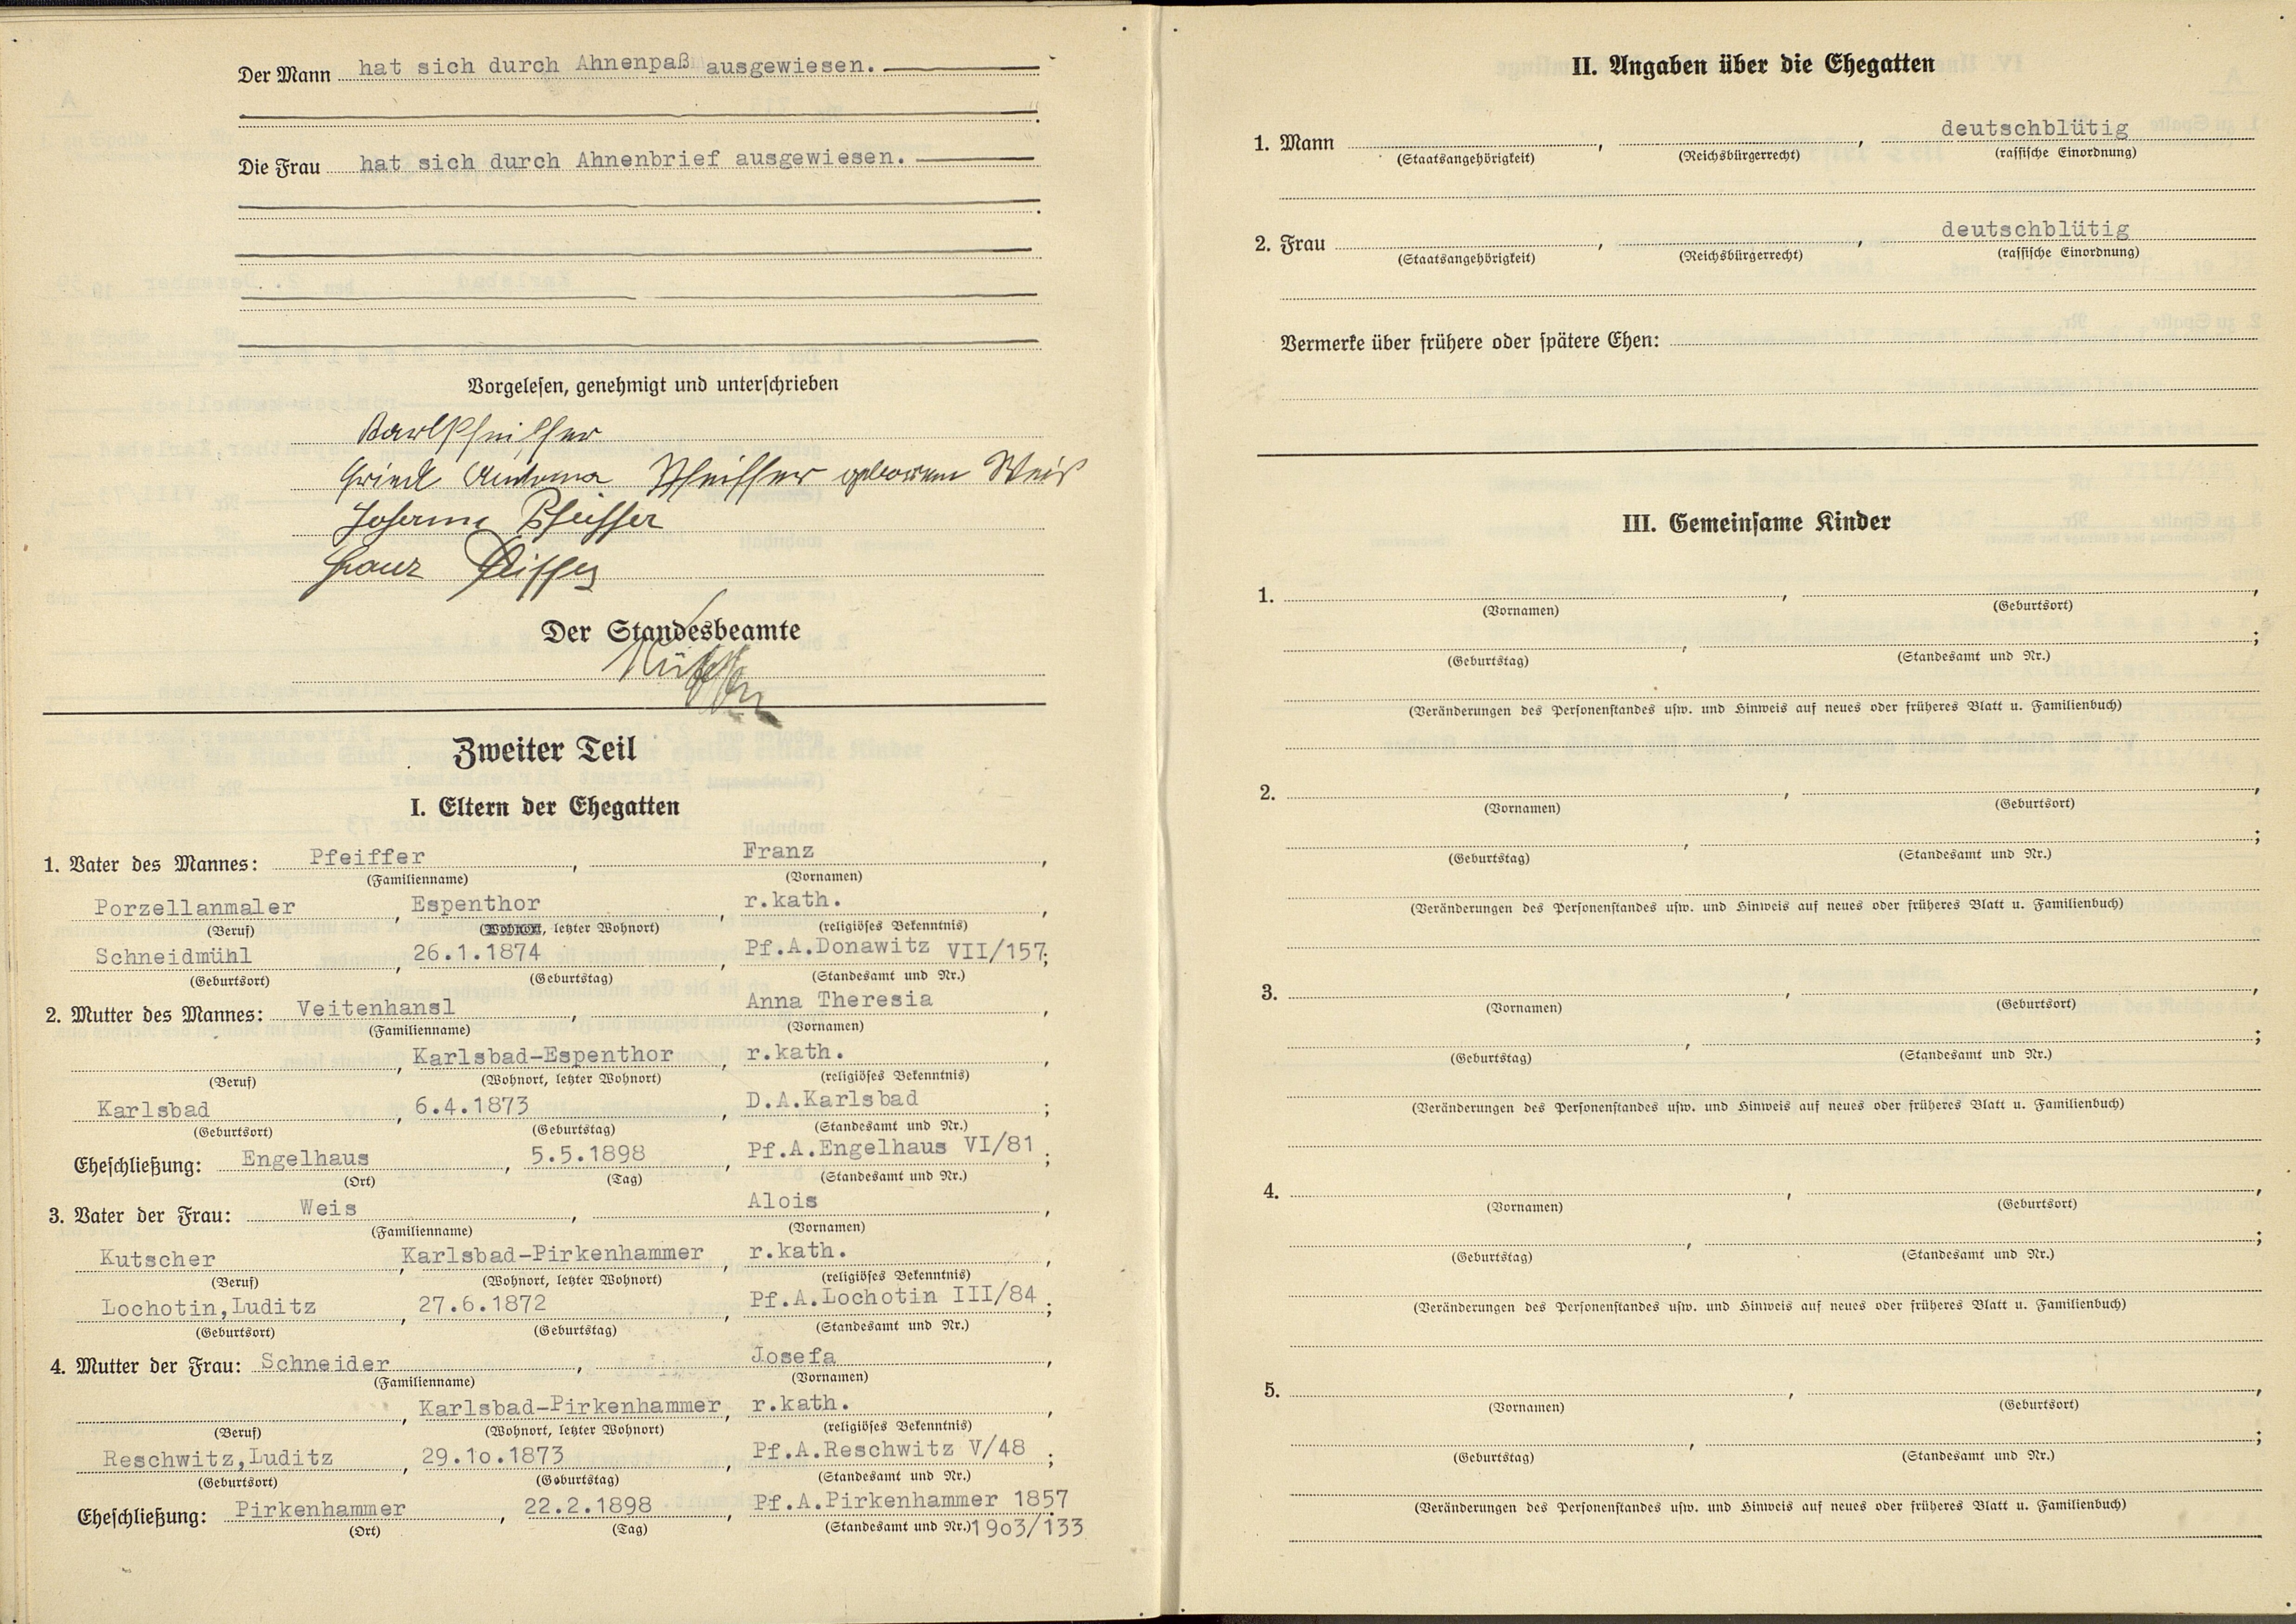 Der Mann hat sich durch Ahnenpaß ausgewiesen.
Die Frau hat sich durch Ahnenbrief ausgewiesen.
Vorgelesen, genehmigt und unterschrieben
Karl Pfeiffer
Antonia Pfeiffer geborene Weis
Pfeiffer
Franz Pfeiffer
Der Standesbeamte
Zweiter Teil
I. Eltern der Ehegatten
1. Vater des Mannes: Pfeiffer, Franz,
(Familienname) (Vornamen)
Porzellanmaler, Espenthor, r.kath.,
(Beruf) (Wohnort, letzter Wohnort) (religiöses Bekenntnis)
Schneidmühl, 26.1.1874, Pf.A.Donawitz VII/157;
(Geburtsort) (Geburtstag) (Standesamt und Nr.)
2. Mutter des Mannes: Veitenhansl, Anna Theresia,
(Familienname) (Vornamen)
, Karlsbad-Espenthor, r.kath.,
(Beruf) (Wohnort, letzter Wohnort) (religiöses Bekenntnis)
Karlsbad, 6.4.1873, D.A.Karlsbad;
(Geburtsort) (Geburtstag) (Standesamt und Nr.)
Eheschließung: Engelhaus, 5.5.1898, Pf.A.Engelhaus VI/81;
(Ort) (Tag) (Standesamt und Nr.)
3. Vater der Frau: Weis, Alois,
(Familienname) (Vornamen)
Kutscher, Karlsbad-Pirkenhammer, r.kath.,
(Beruf) (Wohnort, letzter Wohnort) (religiöses Bekenntnis)
Lochotin,Luditz, 27.6.1872, Pf.A.Lochotin III/84;
(Geburtsort) (Geburtstag) (Standesamt und Nr.)
4. Mutter der Frau: Schneider, Josefa,
(Familienname) (Vornamen)
, Karlsbad-Pirkenhammer, r.kath.,
(Beruf) (Wohnort, letzter Wohnort) (religiöses Bekenntnis)
Reschwitz,Luditz, 29.1o.1873, Pf.A.Reschwitz V/48;
(Geburtsort) (Geburtstag) (Standesamt und Nr.)
Eheschließung: Pirkenhammer, 22.2.1898, Pf.A.Pirkenhammer 1857
(Ort) (Tag) (Standesamt und Nr.) 19o3/133
II. Angaben über die Ehegatten
1. Mann , , deutschblütig
(Staatsangehörigkeit) (Reichsbürgerrecht) (rassische Einordnung)
2. Frau , , deutschblütig
(Staatsangehörigkeit) (Reichsbürgerrecht) (rassische Einordnung)
Vermerke über frühere oder spätere Ehen:
III. Gemeinsame Kinder
1. , ,
(Vornamen) (Geburtsort)
, ;
(Geburtstag) (Standesamt und Nr.)
(Veränderungen des Personenstandes usw. und Hinweis auf neues oder früheres Blatt u. Familienbuch)
2. , ,
(Vornamen) (Geburtsort)
, ;
(Geburtstag) (Standesamt und Nr.)
(Veränderungen des Personenstandes usw. und Hinweis auf neues oder früheres Blatt u. Familienbuch)
3. , ,
(Vornamen) (Geburtsort)
, ;
(Geburtstag) (Standesamt und Nr.)
(Veränderungen des Personenstandes usw. und Hinweis auf neues oder früheres Blatt u. Familienbuch)
4. , ,
(Vornamen) (Geburtsort)
, ;
(Geburtstag) (Standesamt und Nr.)
(Veränderungen des Personenstandes usw. und Hinweis auf neues oder früheres Blatt u. Familienbuch)
5. , ,
(Vornamen) (Geburtsort)
, ;
(Geburtstag) (Standesamt und Nr.)
(Veränderungen des Personenstandes usw. und Hinweis auf neues oder früheres Blatt u. Familienbuch)